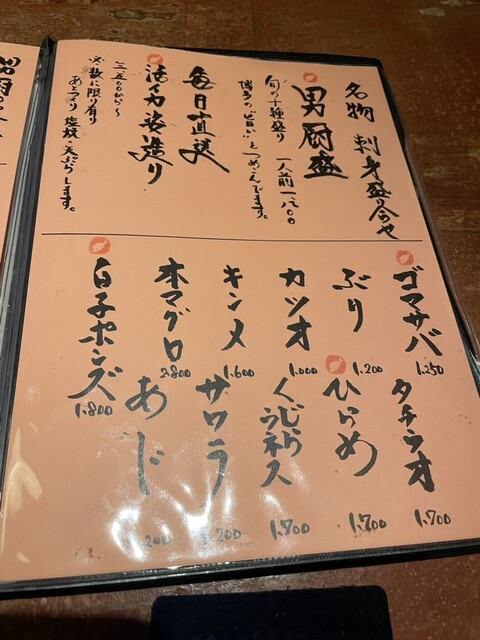 名物 刺身盛り合せ
男厨盛
旬の十種盛り 一人前一八〇〇
博多の〝旨い〟をつめこんでます。
毎日直送
活イカ姿造り
二、五〇〇から〜
※数に限り有り
あとつくり 塩焼・天ぷらします。
ゴマサバ
1.250
ぶり
1.200
カツオ
1.000
キンメ
1.600
本マグロ
2.800
白子ポンズ
1.800
タチウオ
1.700
ひらめ
1.700
くじら
ウネス
1.700
サワラ
1.200
あじ
男厨